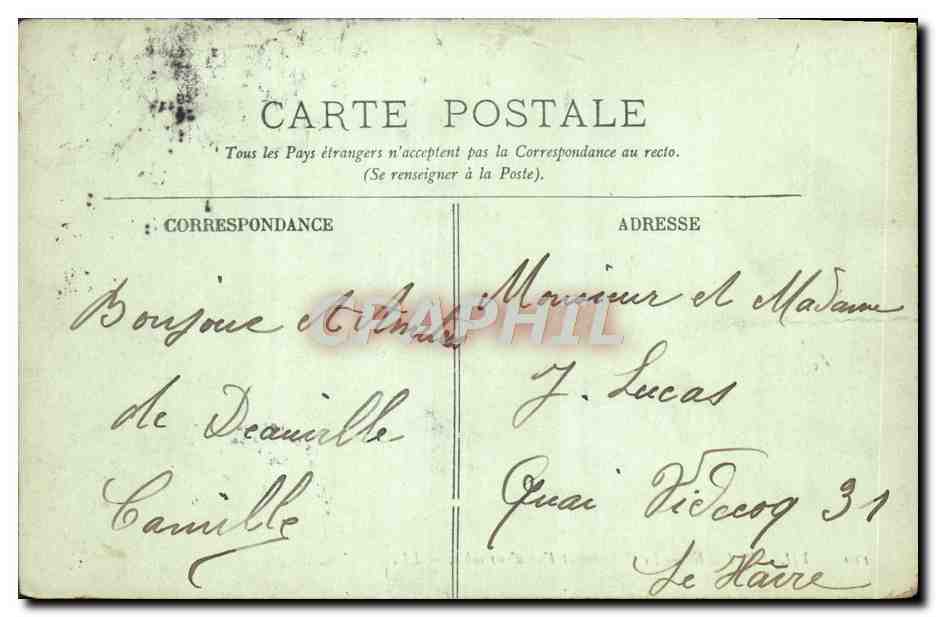 CARTE POSTALE
Tous les Pays étrangers n'acceptent pas la Correspondance au recto.
(Se renseigner à la Poste).
CORRESPONDANCE
Bonjour et
de Deauville
Camille
ADRESSE
Monsieur et Madame
J. Lucas
Quai Videcoq 31
Le Hâvre
CPAPHIL